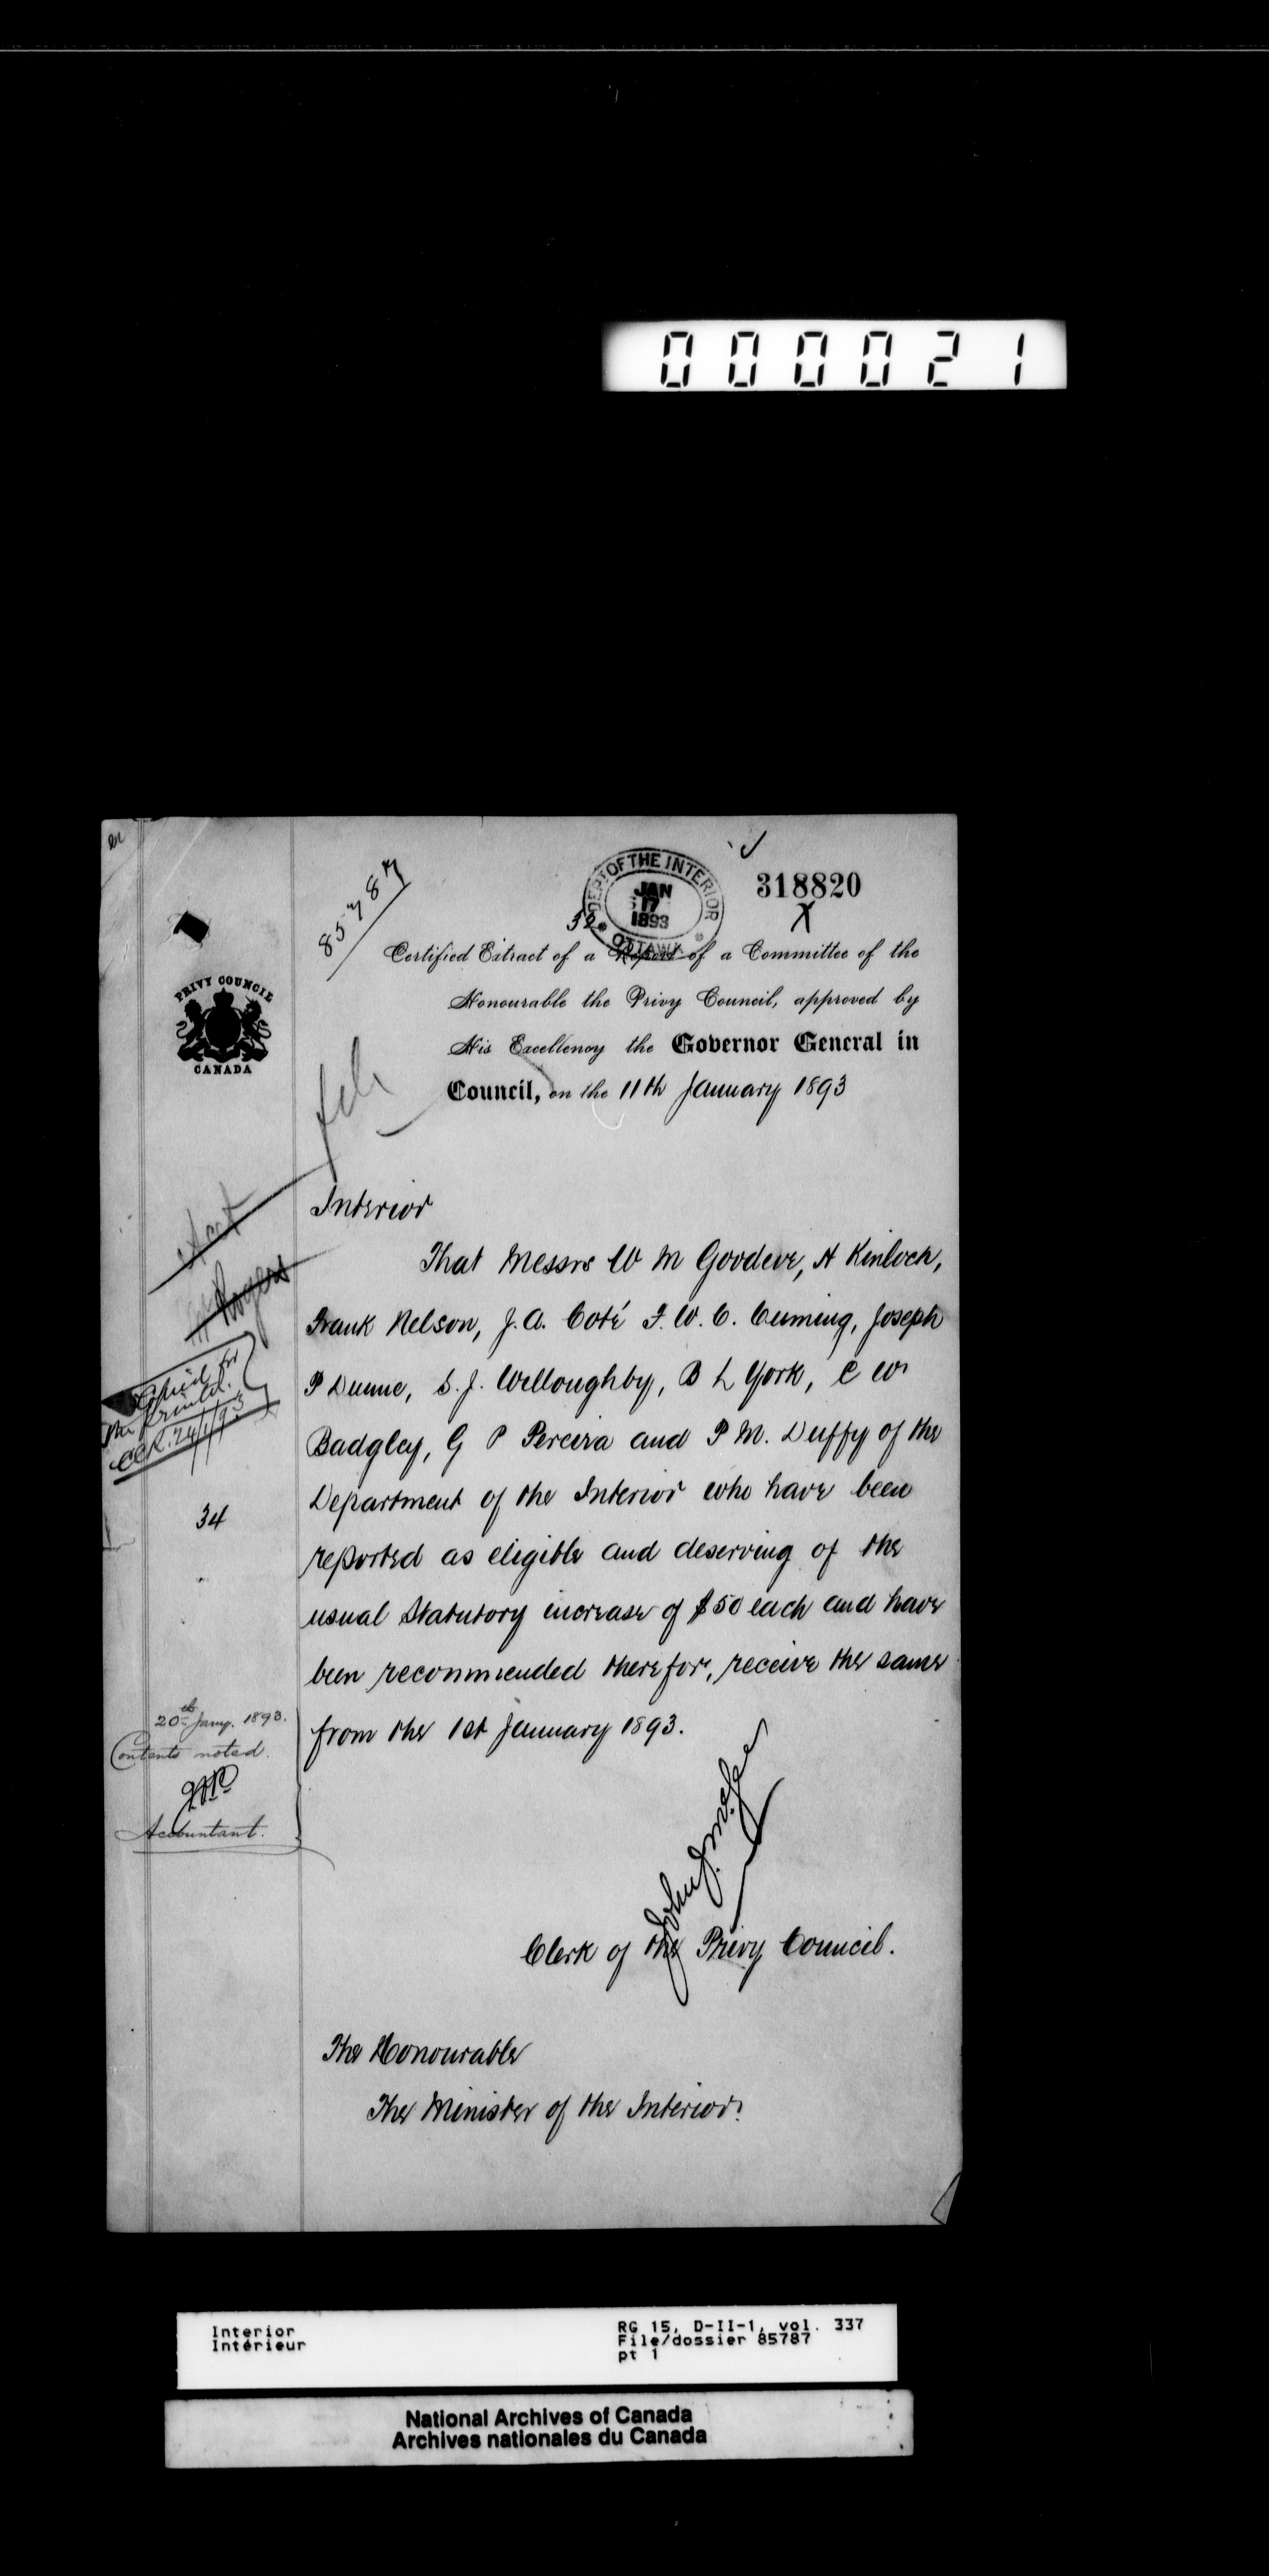 000021
DEPT OF THE INTERIOR
JAN
17
1893
OTTAWA
318820
X
85787
PRIVY COUNCIL
CANADA
Certified Extract of a Report of a Committee of the
Honourable the Privy Council, approved by
His Excellency the Governor General in
Council, on the 11th January 1893
Interior
That Messrs W M Goodeve, H Kinloch,
Frank Nelson, J. A. Coté F. W. C. Cuming, Joseph
P Dunne, S. J. Willoughby, B L York, C W
Badgley, G P Pereira and P M. Duffy of the
Department of the Interior who have been
reported as eligible and deserving of the
usual Statutory increase of $50 each and have
been recommended therefor, receive the same
from the 1st January 1893.
Rogers
Copied for
24/1/93
34
20th Jany. 1893.
Contents noted.
Accountant.
John J. McGee
Clerk of the Privy Council.
The Honourable
The Minister of the Interior.
Interior
Intérieur
RG 15, D-II-1, vol. 337
File/dossier 85787
pt 1
National Archives of Canada
Archives nationales du Canada